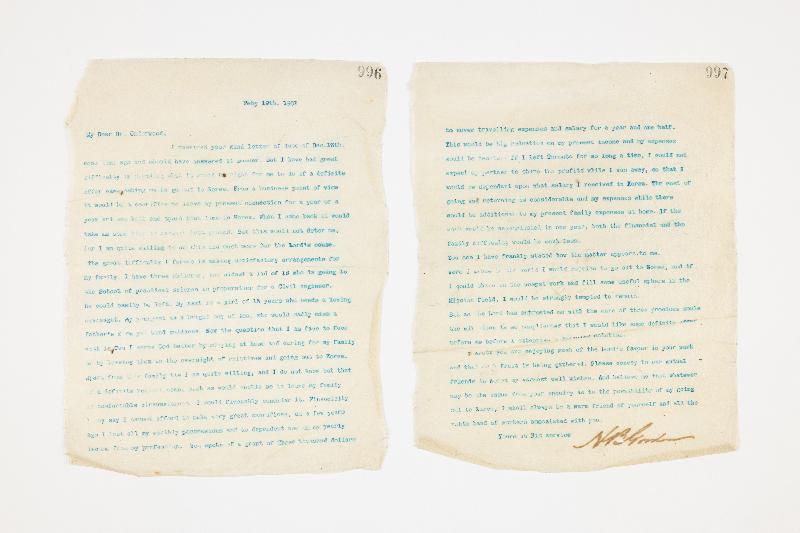 996
Feby 19th. 1902
My Dear Dr. Underwood,
I received your kind letter of date of Dec. 18th.
some time ago and should have answered it sooner. But I have had great
difficulty in deciding what it would be right for me to do if a definite
offer came asking me to go out to Korea. From a business point of view
it would be a sacrifice to leave my present connection for a year or a
year and one half and spend that time in Korea. When I came back it would
take me some time to recover lost ground. But this would not deter me,
for I am quite willing to do this and much more for the Lord's cause.
The great difficulty I foresee is making satisfactory arrangements for
my family. I have three children, the oldest a lad of 18 who is going to
the School of practical Science in preparation for a Civil engineer.
He could easily be left. My next is a girl of 15 years who needs a loving
oversight. My youngest is a bright boy of ten, who would sadly miss a
father's kind guidance. Now the question that I am face to face
with is Can I serve God better by staying at home and caring for my family
or by leaving them to the oversight of relatives and going out to Korea.
Apart from the family tie I am quite willing, and I do not know but that
if a definite request came, such as would enable me to leave my family
in comfortable circumstances I would favorably consider it. Financially
I may say I cannot afford to make very great sacrifices, as a few years
ago I lost all my worldly possessions and am dependent now on my yearly
income from my profession. You spoke of a grant of Three thousand dollars
997
to cover travelling expenses and salary for a year and one half.
This would be big reduction on my present income and my expenses
would be heavier. If I left Toronto for so long a time, I could not
expect my partner to share the profits while I was away, so that I
would be dependant upon what salary I received in Korea. The cost of
going and returning is considerable and my expenses while there
would be additional to my present family expenses at home. If the
work could be accomplished in one year, both the financial and the
family difficulty would be much less.
You see I have frankly stated how the matter appears to me.
Were I alone in the world I would rejoice to go out to Korea, and if
I could share in the honest work and fill some useful sphere in the
Mission field, I would be strongly tempted to remain.
But as the Lord has entrusted me with the care of three precious souls
the situation is so complicated that I would like some definite
before me before I attempted a solution.
I trust you are enjoying much of the Lord's favour in your work
and that much fruit is being gathered. Please convey to our mutual
friends in Korea my warmest well wishes. And believe me that whatever
may be the issue from your enquiry as to the possibility of my going
out to Korea, I shall always be a warm friend of yourself and all the
noble band of workers associated with you.
Yours in His service
H B Gordon